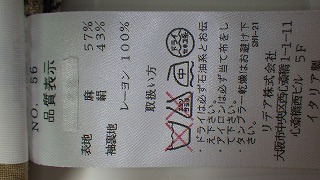 NO. 56
品質表示
表地 麻 57%
絹 43%
袖裏地 レーヨン 100%
取扱い方
ドライ
・ドライは必ず石油系とお伝
え下さい。
・アイロンは必ず当て布をし
て下さい。
・タンブラー乾燥はお避け下
さい。 SMI-21
リデア株式会社
大阪市中央区西心斎橋1-1-11
心斎橋西ビル 5F
イタリア製